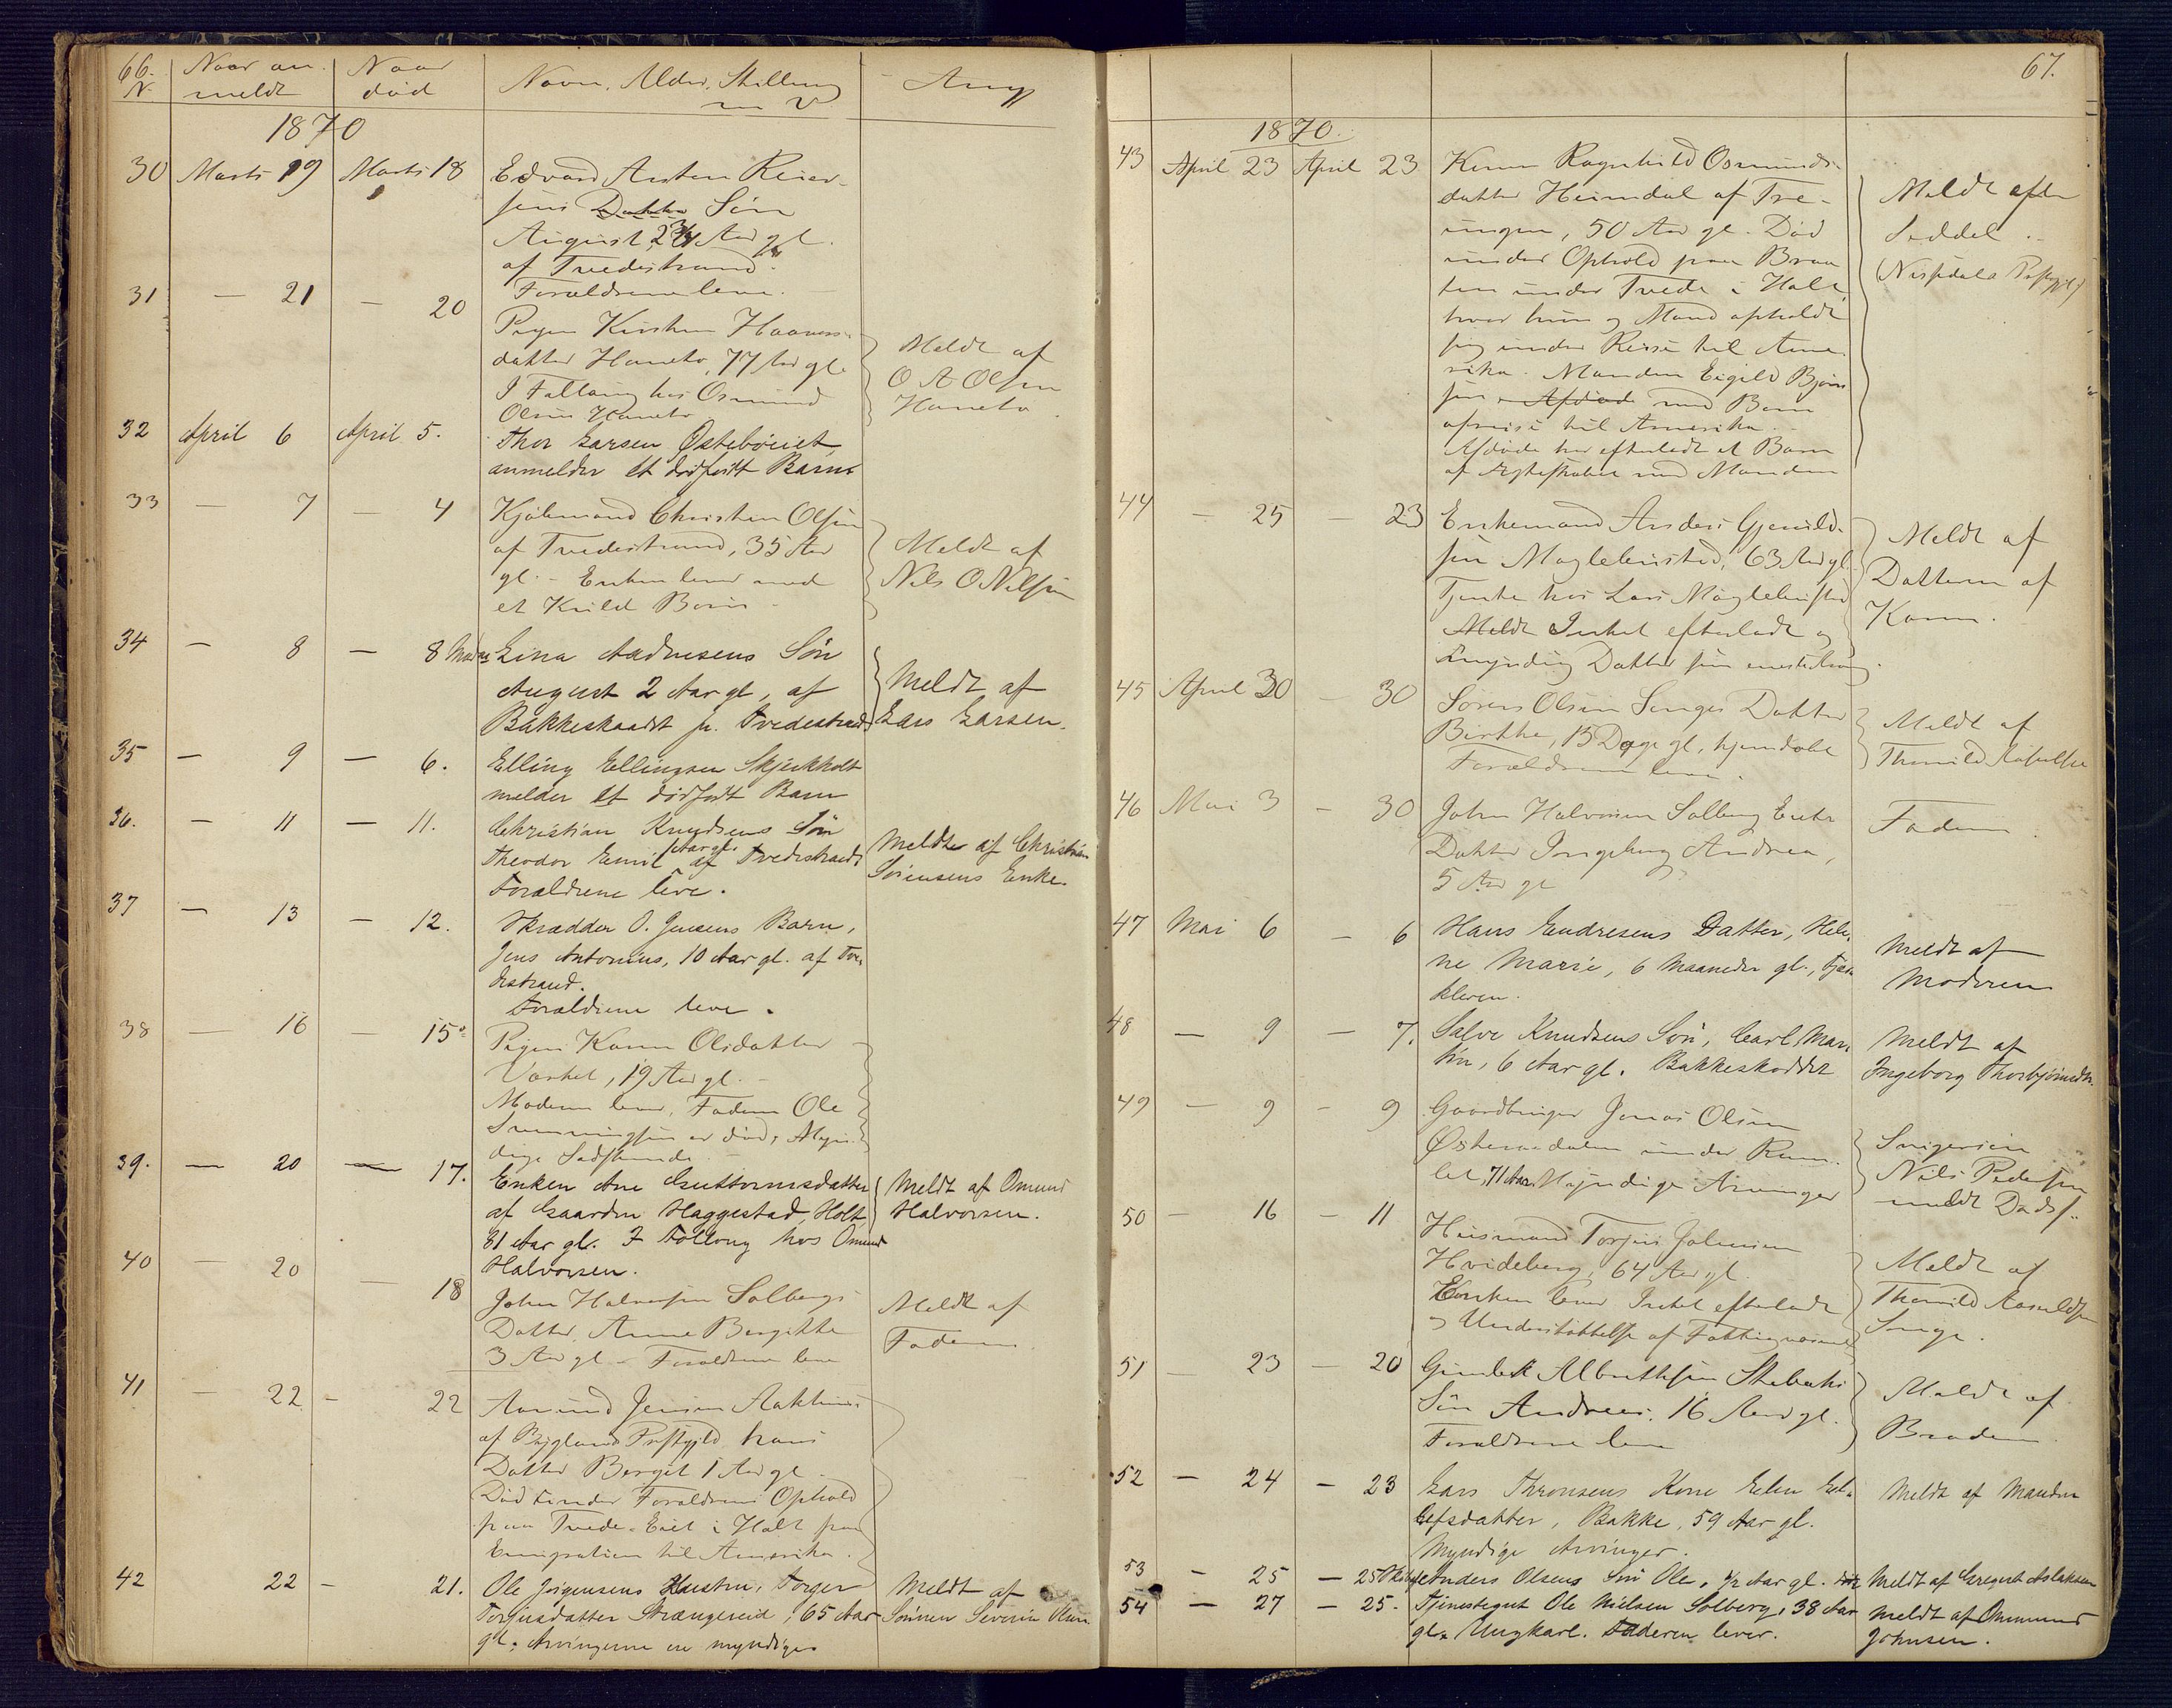 66.
N. Naar an- Naar Navn, Alder, Stilling Anm
meldt død m V.
1870
30 Marts 19 Marts 18 Edvard Anton Reier-
sens Datter Søn
August, 2 3/4 Aar gl.
af Tvedestrand.
Forældrene leve.
31 — 21 — 20 Pigen Kirsten Haavors-
datter Haneto, 77 Aar gl. Meldt af
I Follaug hos Osmund O A Olsen
Olsen Haneto Haneto.
32 April 6 April 5. Thor Larsen Østebøeiet
anmelder et dødfødt Barn
33 — 7 — 4 Kjøbmand Christen Olsen
af Tvedestrand, 35 Aar Meldt af
gl. - Enken lever med Nils O Nilsen
et Kuld Børn.
34 — 8 — 8 Lina Andresens Søn
August 2 Aar gl, af Meldt af
Bakkeskaadt pr. Tvedestrand Lars Larsen.
35 — 9 — 6. Elling Ellingsen Skjerkholt
melder et dødfødt Barn
36. — 11 — 11. Christian Knudsens Søn
Theodor Emil 1 Aar gl. af Tvedestrand Meldt af Christian
Forældrene leve. Sørensens Enke.
37 — 13 — 12. Skrædder O. Jensens Barn,
Jens Antonius, 10 Aar gl. af Tve-
destrand.
Forældrene leve.
38 — 16 — 15. Pigen Karen Olsdatter
19 Aar gl. -
Moderen lever, Faderen Ole
er død, Myn-
dige Sødskende.
39. — 20 — 17. Enken Ane Guttormsdatter Meldt af Omund
af Gaarden Haggestad, Holt Halvorsen.
81 Aar gl. I Follaug hos Omund
Halvorsen.
40 — 20 — 18 John Halvorsen Solbergs Meldt af
Datter, Anne Bergitte Faderen
3 Aar gl - Forældrene leve
41 — 22 — 22 Aanund Jensen
af Bygland Præstgjeld hans
Datter Bergit 1 Aar gl.
Død under Forældrenes Ophold
paa Tvede-Eiet i Holt paa
Emigration til Amerika.
42 22 — 21. Ole Jørgensens Hustru, Torger Meldt af
Torjusdatter Strængereid, 65 Aar Sønnen Severin Olsen
gl. Arvingerne ere myndige
67.
1870.
43 April 23 April 23 Konen Ragnhild Osmunds-
datter Heimdal af Tre- Meldt efter
ungen, 50 Aar gl. Død Seddel.
under Ophold paa Braa- (Nissedals Præstgjeld)
ten under Tvede i Holt,
hvor hun og Mand opholdt
sig under Reise til Ame-
rika. Manden Eigild Bjørn-
sen, Afdøde med Børn
afreise til Amerika.
Afdøde har efterladt et Barn
af Ægteskabet med Manden
44 — 25 — 23 Enkemand Anders Gjeruld-
sen Møglebristad, 63 Aar gl. Meldt af
Tjente hos Lars Møglebristad Datteren af
Meldt Intet efterladt og Karen.
umyndig Datter sin eneste Arving.
45 April 30 — 30 Søren Olsen Songes Datter Meldt af
Birthe, 15 Dage gl, hjemdøbt
Forældrene leve.
46 Mai 3 — 30 John Halvorsen Solberg
Datter Ingeborg Andrea, Faderen
5 Aar gl
47 Mai 6 — 6 Hans Endresens Datter, Hele-
ne Marie, 6 Maaneder gl., Meldt af
kleven. Moderen
48 — 9 — 7. Salve Knudsens Søn, Carl Mar- Meldt af
tin, 6 Aar gl. Bakkeskoddet Ingeborg Thorbjørnsdtr.
49 — 9 — 9 Gaardbruger Jonas Olsen
Østeraadalen under Ram-
let, 71 Aar. Myndige Arvinger Nils Pedersen
meldt Dødsf.
50 — 16 — 11 Husmand Torjus Johnsen
Hvideberg, 64 Aar gl. Meldt af
Enken lever Intet efterladt Thorvild
og Understøttelse af Fattigvæsenet Songe.
51 — 23 — 20 Gunder Albretsen Stebeks
Søn Andreas, 16 Aar gl. Meldt af
Forældrene leve Broderen
52 — 24 — 23 Lars Thronsens Kone Elen El-
lefsdatter, Bakke, 59 Aar gl. Meldt af Manden
Myndige Arvinger.
53 — 25 — 25 Anders Olsens Søn Ole, 1/2 Aar gl. Meldt af Gregert Aslaksen
54 — 27 — 25. Tjenestegut Ole Nielsen Solberg, 38 Aar Meldt af Ommund
gl. Ungkarl. Faderen lever. Johnsen.